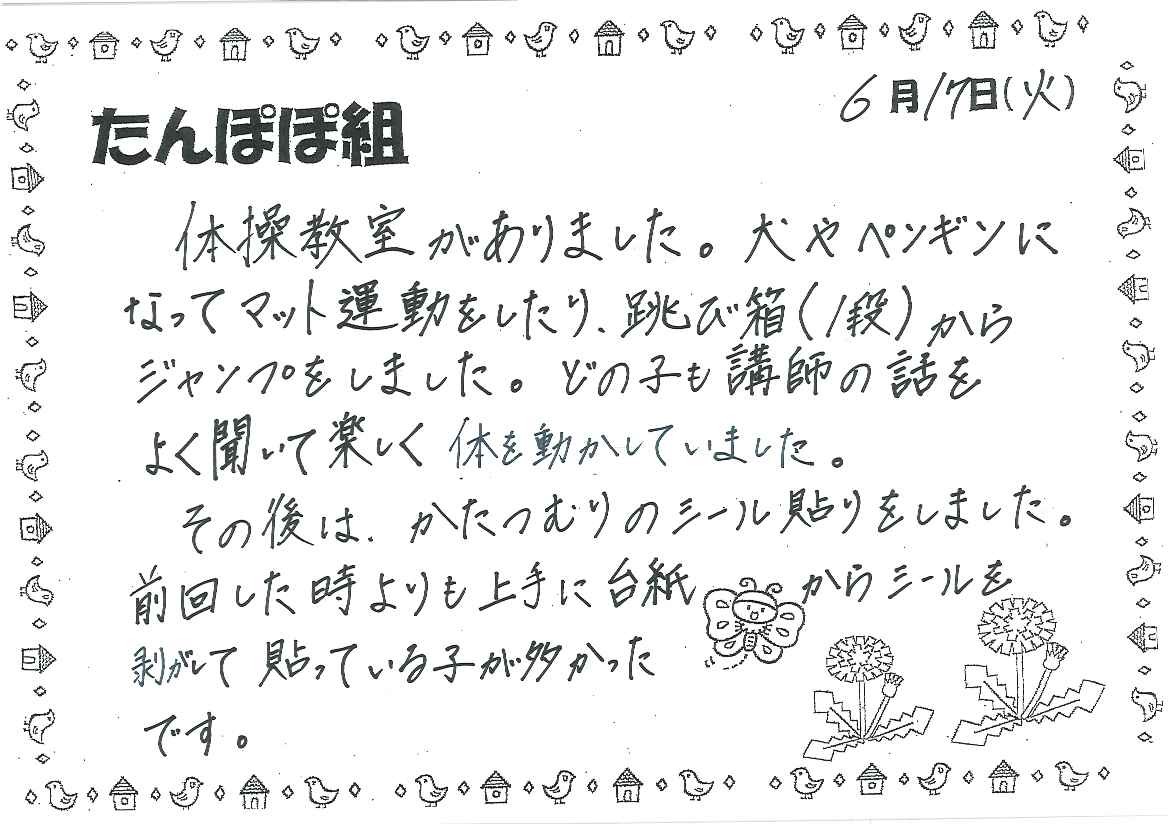 6月17日(火)
たんぽぽ組
体操教室がありました。犬やペンギンに
なってマット運動をしたり、跳び箱(1段)から
ジャンプをしました。どの子も講師の話を
よく聞いて楽しく体を動かしていました。
その後は、かたつむりのシール貼りをしました。
前回した時よりも上手に台紙からシールを
剥がして貼っている子が多かった
です。